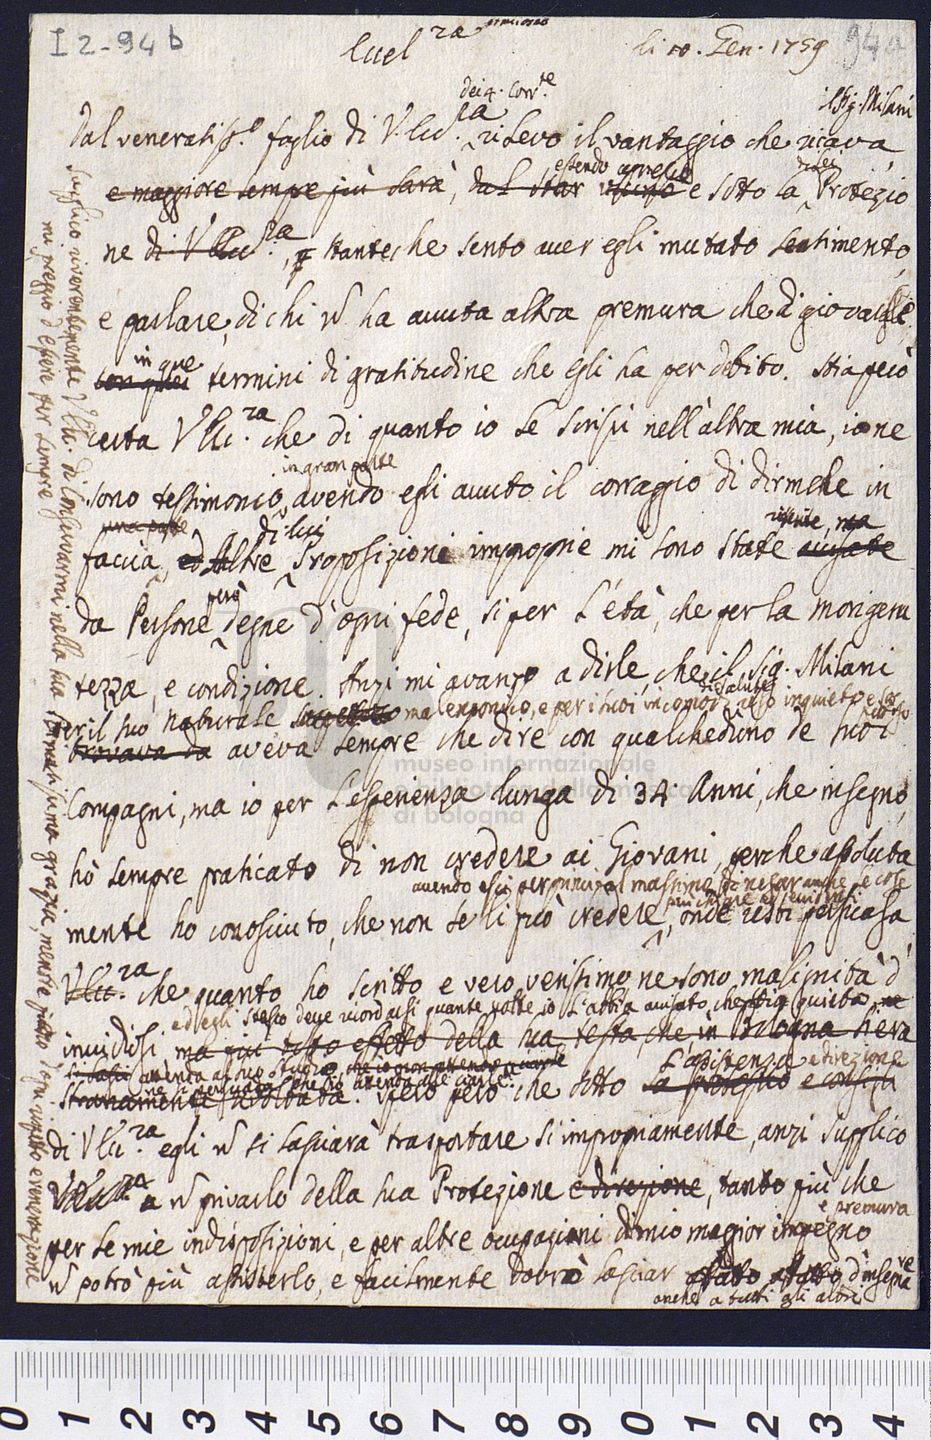 I 2-94 b
94a
li 10. Gen. 1759
Sig. Milani
dei 4. Corr.te
dal veneratiss.o foglio di V. Ecc.za rilevo il vantaggio che ricava,
essendo appresso di Lei
e maggiore sempre più sarà, dal star vicino e sotto la Protezio
ne di V. Ecc.za, stante che sento aver egli mutato sentimento,
e parlare, di chi ñ ha avuta altra premura che di giovarle,
in que
con quei termini di gratitudine che egli ha per debito. Stia però
certa V. Ecc.za che di quanto io le scrissi nell'altra mia, io ne
in gran parte
sono testimonio, avendo egli avuto il corraggio di dirmele in
una parte di lui riferite, ma
faccia, ed Altre Proposizioni improprie mi sono state avisate
però
da Persone degne d'ogni fede, si per l'età, che per la morigera
tezza, e condizione. Anzi mi avanzo a dirle, che il Sig. Milani
per il suo naturale malenconico, e per i suoi incomodi di salute, reso inquieto
trovava da aveva sempre che dire con qualcheduno de suoi
Compagni, ma io per l'esperienza lunga di 34 Anni, che insegno,
hò sempre praticato di non credere ai Giovani, perche assoluta
avendo essi per massima di negar anche le cose
più chiare ed evidenti
mente ho conosciuto, che non se li può credere, onde resti persuasa
V. Ecc.za che quanto ho scritto e vero verissimo ne sono malignità d'
ed egli stesso deve ricordarsi quante volte io l'abbia avisato
invidiosi, ma più tosto effetto della sua testa, che in Bologna s'era
l'assistenza e direzione
stranamente spero però che sotto la protezio e consigli
di V. Ecc.za egli ñ si lasciarà trasportare si impropriamente, anzi supplico
V. Ecc.za a ñ privarlo della sua Protezione e direzione, tanto più che
e premura
per le mie indisposizioni, e per altre ocupazioni di mio maggior impegno
ñ potrò più assisterlo, e facilmente dovrò lasciar affatto d'insegnare
anche a tutti gli altri
supplico riverentemente V. Ecc. di conservarmi nella sua stimatissima grazia, mentre pieno d'ogni rispetto e venerazione
mi preggio d'essere per sempre
museo internazionale
e biblioteca della musica
di bologna
0 1 2 3 4 5 6 7 8 9 0 1 2 3 4